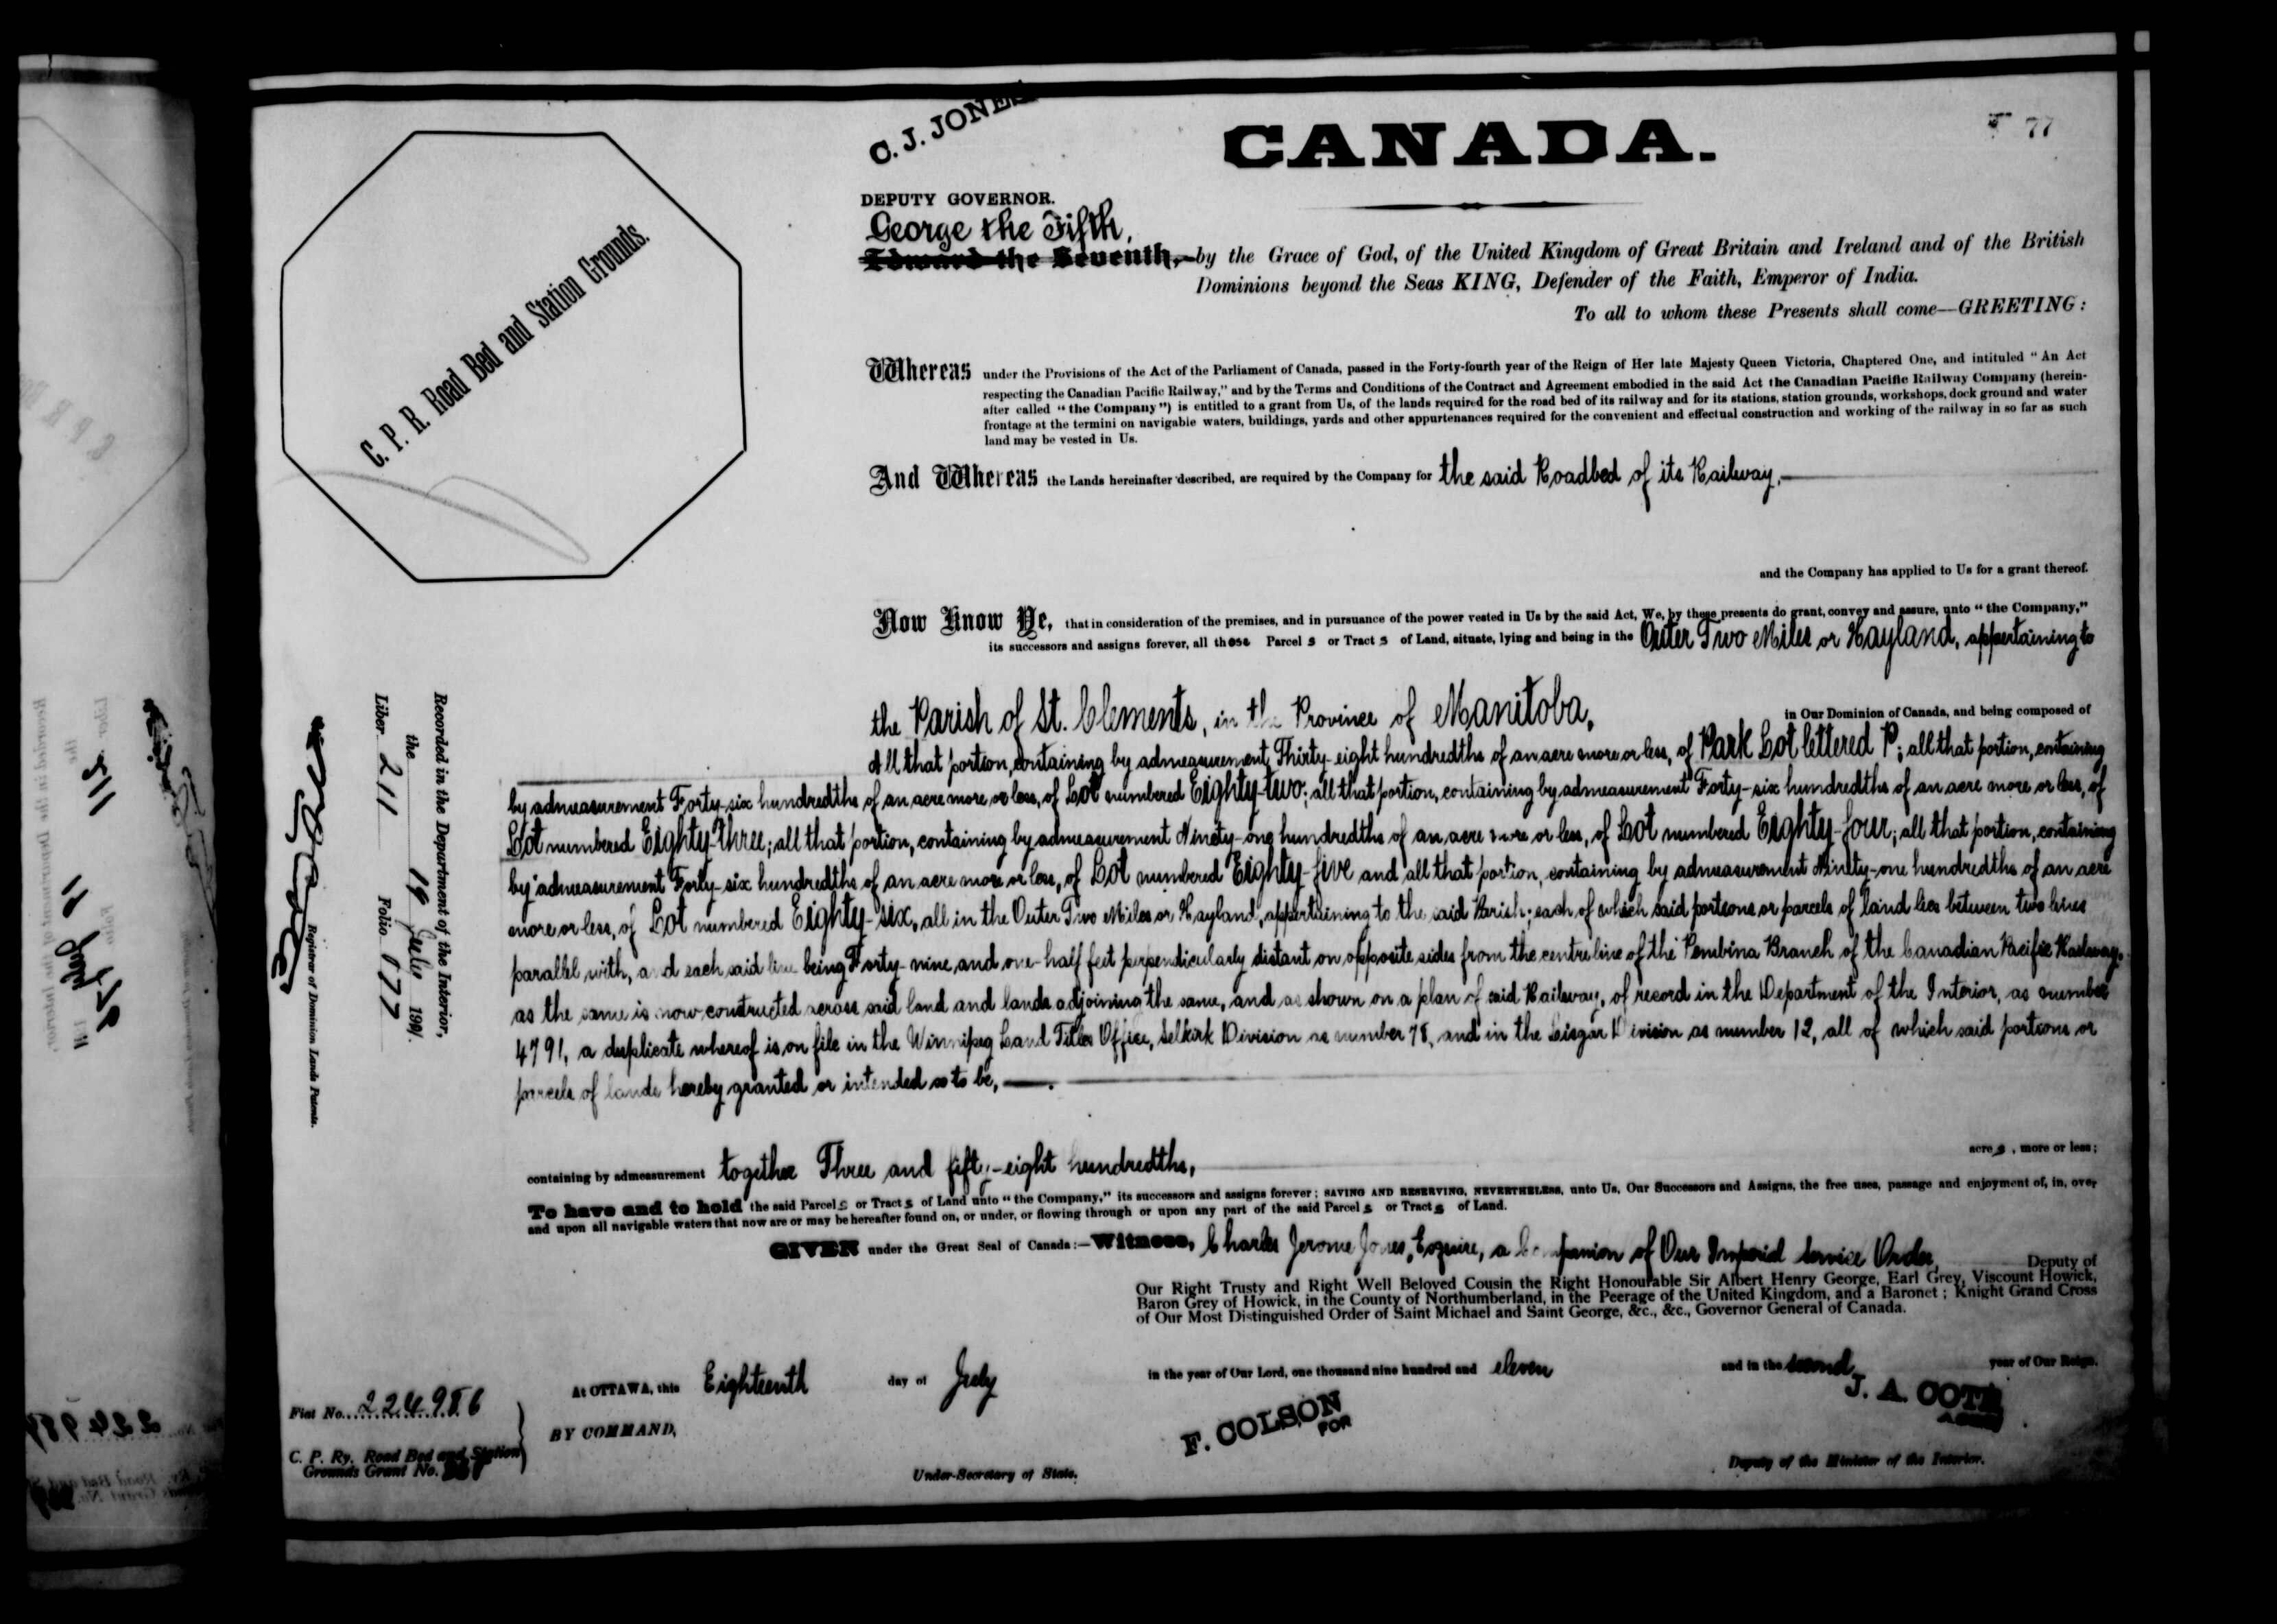 C. J. JONES
CANADA.
77
DEPUTY GOVERNOR.
George the Fifth,
Edward the Seventh, by the Grace of God, of the United Kingdom of Great Britain and Ireland and of the British
Dominions beyond the Seas KING, Defender of the Faith, Emperor of India.
To all to whom these Presents shall come—GREETING:
C. P. R. Road Bed and Station Grounds.
Whereas under the Provisions of the Act of the Parliament of Canada, passed in the Forty-fourth year of the Reign of Her late Majesty Queen Victoria, Chaptered One, and intituled "An Act
respecting the Canadian Pacific Railway," and by the Terms and Conditions of the Contract and Agreement embodied in the said Act the Canadian Pacific Railway Company (herein-
after called "the Company") is entitled to a grant from Us, of the lands required for the road bed of its railway and for its stations, station grounds, workshops, dock ground and water
frontage at the termini on navigable waters, buildings, yards and other appurtenances required for the convenient and effectual construction and working of the railway in so far as such
land may be vested in Us.
And Whereas the Lands hereinafter described, are required by the Company for the said Roadbed of its Railway,
and the Company has applied to Us for a grant thereof.
Now Know Ye, that in consideration of the premises, and in pursuance of the power vested in Us by the said Act, We, by these presents do grant, convey and assure, unto "the Company,"
its successors and assigns forever, all those Parcels or Tracts of Land, situate, lying and being in the Outer Two Miles or Hayland, appertaining to
the Parish of St. Clements, in the Province of Manitoba, in Our Dominion of Canada, and being composed of
All that portion, containing by admeasurement Thirty-eight hundredths of an acre more or less, of Park Lot lettered P; all that portion, containing
by admeasurement Forty-six hundredths of an acre more or less, of Lot numbered Eighty-two; all that portion, containing by admeasurement Forty-six hundredths of an acre more or less, of
Lot numbered Eighty-three; all that portion, containing by admeasurement Ninety-one hundredths of an acre more or less, of Lot numbered Eighty-four; all that portion, containing
by admeasurement Forty-six hundredths of an acre more or less, of Lot numbered Eighty-five and all that portion, containing by admeasurement Ninety-one hundredths of an acre
more or less, of Lot numbered Eighty-six, all in the Outer Two Miles or Hayland, appertaining to the said Parish; each of which said portions or parcels of land lies between two lines
parallel with, and each said line being Forty-nine and one-half feet perpendicularly distant on opposite sides from the centre line of the Pembina Branch of the Canadian Pacific Railway,
as the same is now constructed across said land and lands adjoining the same, and as shown on a plan of said Railway, of record in the Department of the Interior, as number
4791, a duplicate whereof is on file in the Winnipeg Land Titles Office, Selkirk Division as number 78, and in the Lisgar Division as number 12, all of which said portions or
parcels of lands hereby granted or intended so to be,
containing by admeasurement together Three and fifty-eight hundredths, acres, more or less;
To have and to hold the said Parcels or Tracts of Land unto "the Company," its successors and assigns forever; SAVING AND RESERVING, NEVERTHELESS, unto Us, Our Successors and Assigns, the free uses, passage and enjoyment of, in, over
and upon all navigable waters that now are or may be hereafter found on, or under, or flowing through or upon any part of the said Parcels or Tracts of Land.
GIVEN under the Great Seal of Canada:—Witness, Charles Jerome Jones, Esquire, a Companion of Our Imperial Service Order, Deputy of
Our Right Trusty and Right Well Beloved Cousin the Right Honourable Sir Albert Henry George, Earl Grey, Viscount Howick,
Baron Grey of Howick, in the County of Northumberland, in the Peerage of the United Kingdom, and a Baronet; Knight Grand Cross
of Our Most Distinguished Order of Saint Michael and Saint George, &c., &c., Governor General of Canada.
At OTTAWA, this Eighteenth day of July in the year of Our Lord, one thousand nine hundred and eleven and in the second year of Our Reign.
BY COMMAND,
F. COLSON
FOR
Under-Secretary of State.
J. A. COTE
Deputy of the Minister of the Interior.
Fiat No. 224986
C. P. Ry. Road Bed and Station
Grounds Grant No.
Recorded in the Department of the Interior,
the 19 July 191.
Liber 211 Folio 077
Registrar of Dominion Lands Patents.